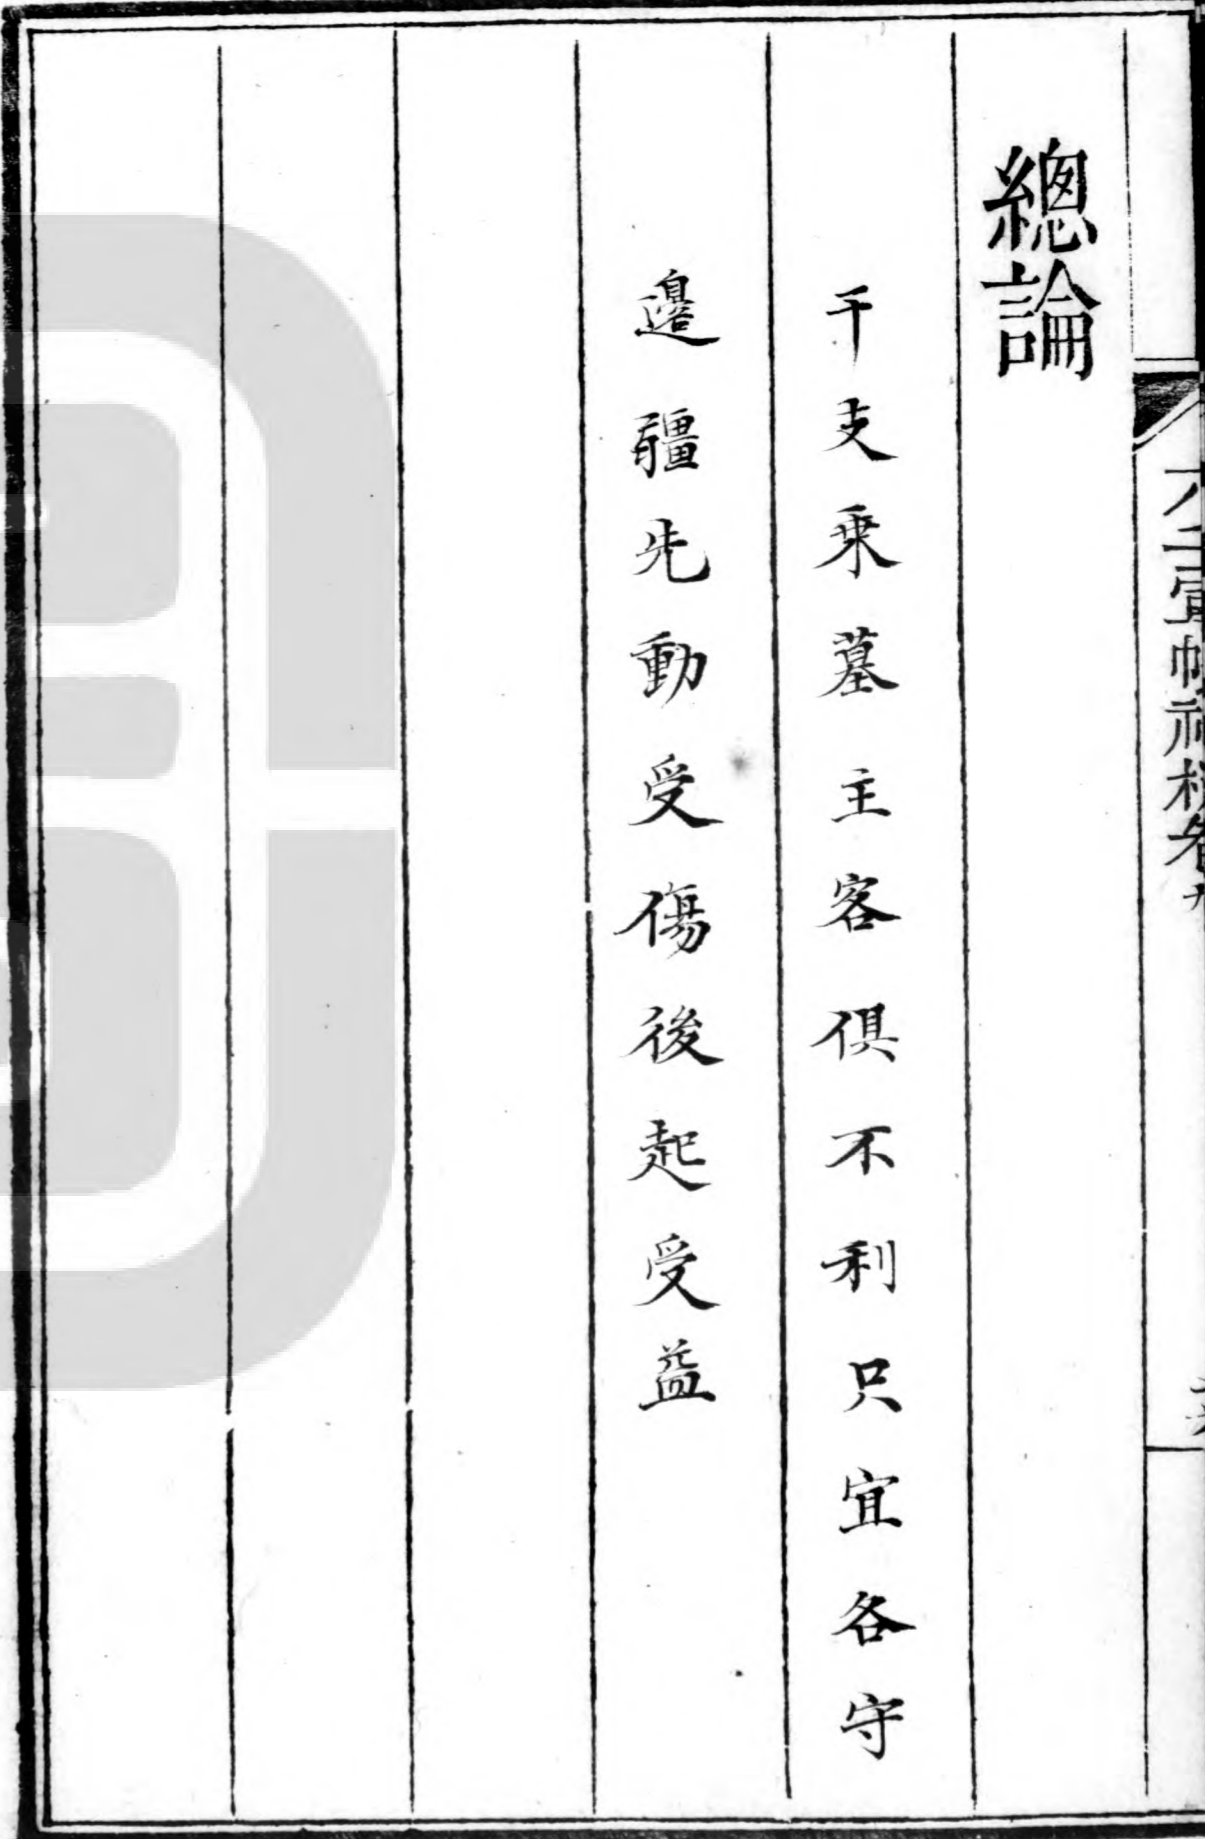 總論
干支乘墓主客俱不利只宜各守
邊疆先動受傷後起受益